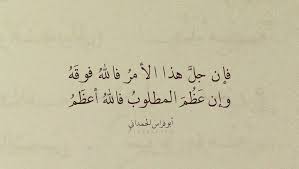 فإن جلَّ هذا الأمرُ فاللهُ فوقَهُ
وإن عَظُمَ المطلوبُ فاللهُ أعظَمُ
أبو فراس الحمداني